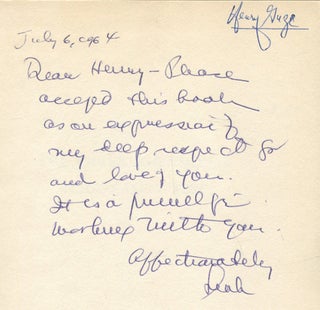 Henry Guze
July 6, 1964
Dear Henry – Please
accept this book
as an expression of
my deep respect for
and love of you.
It is a privilege
working with you.
Affectionately
Leah